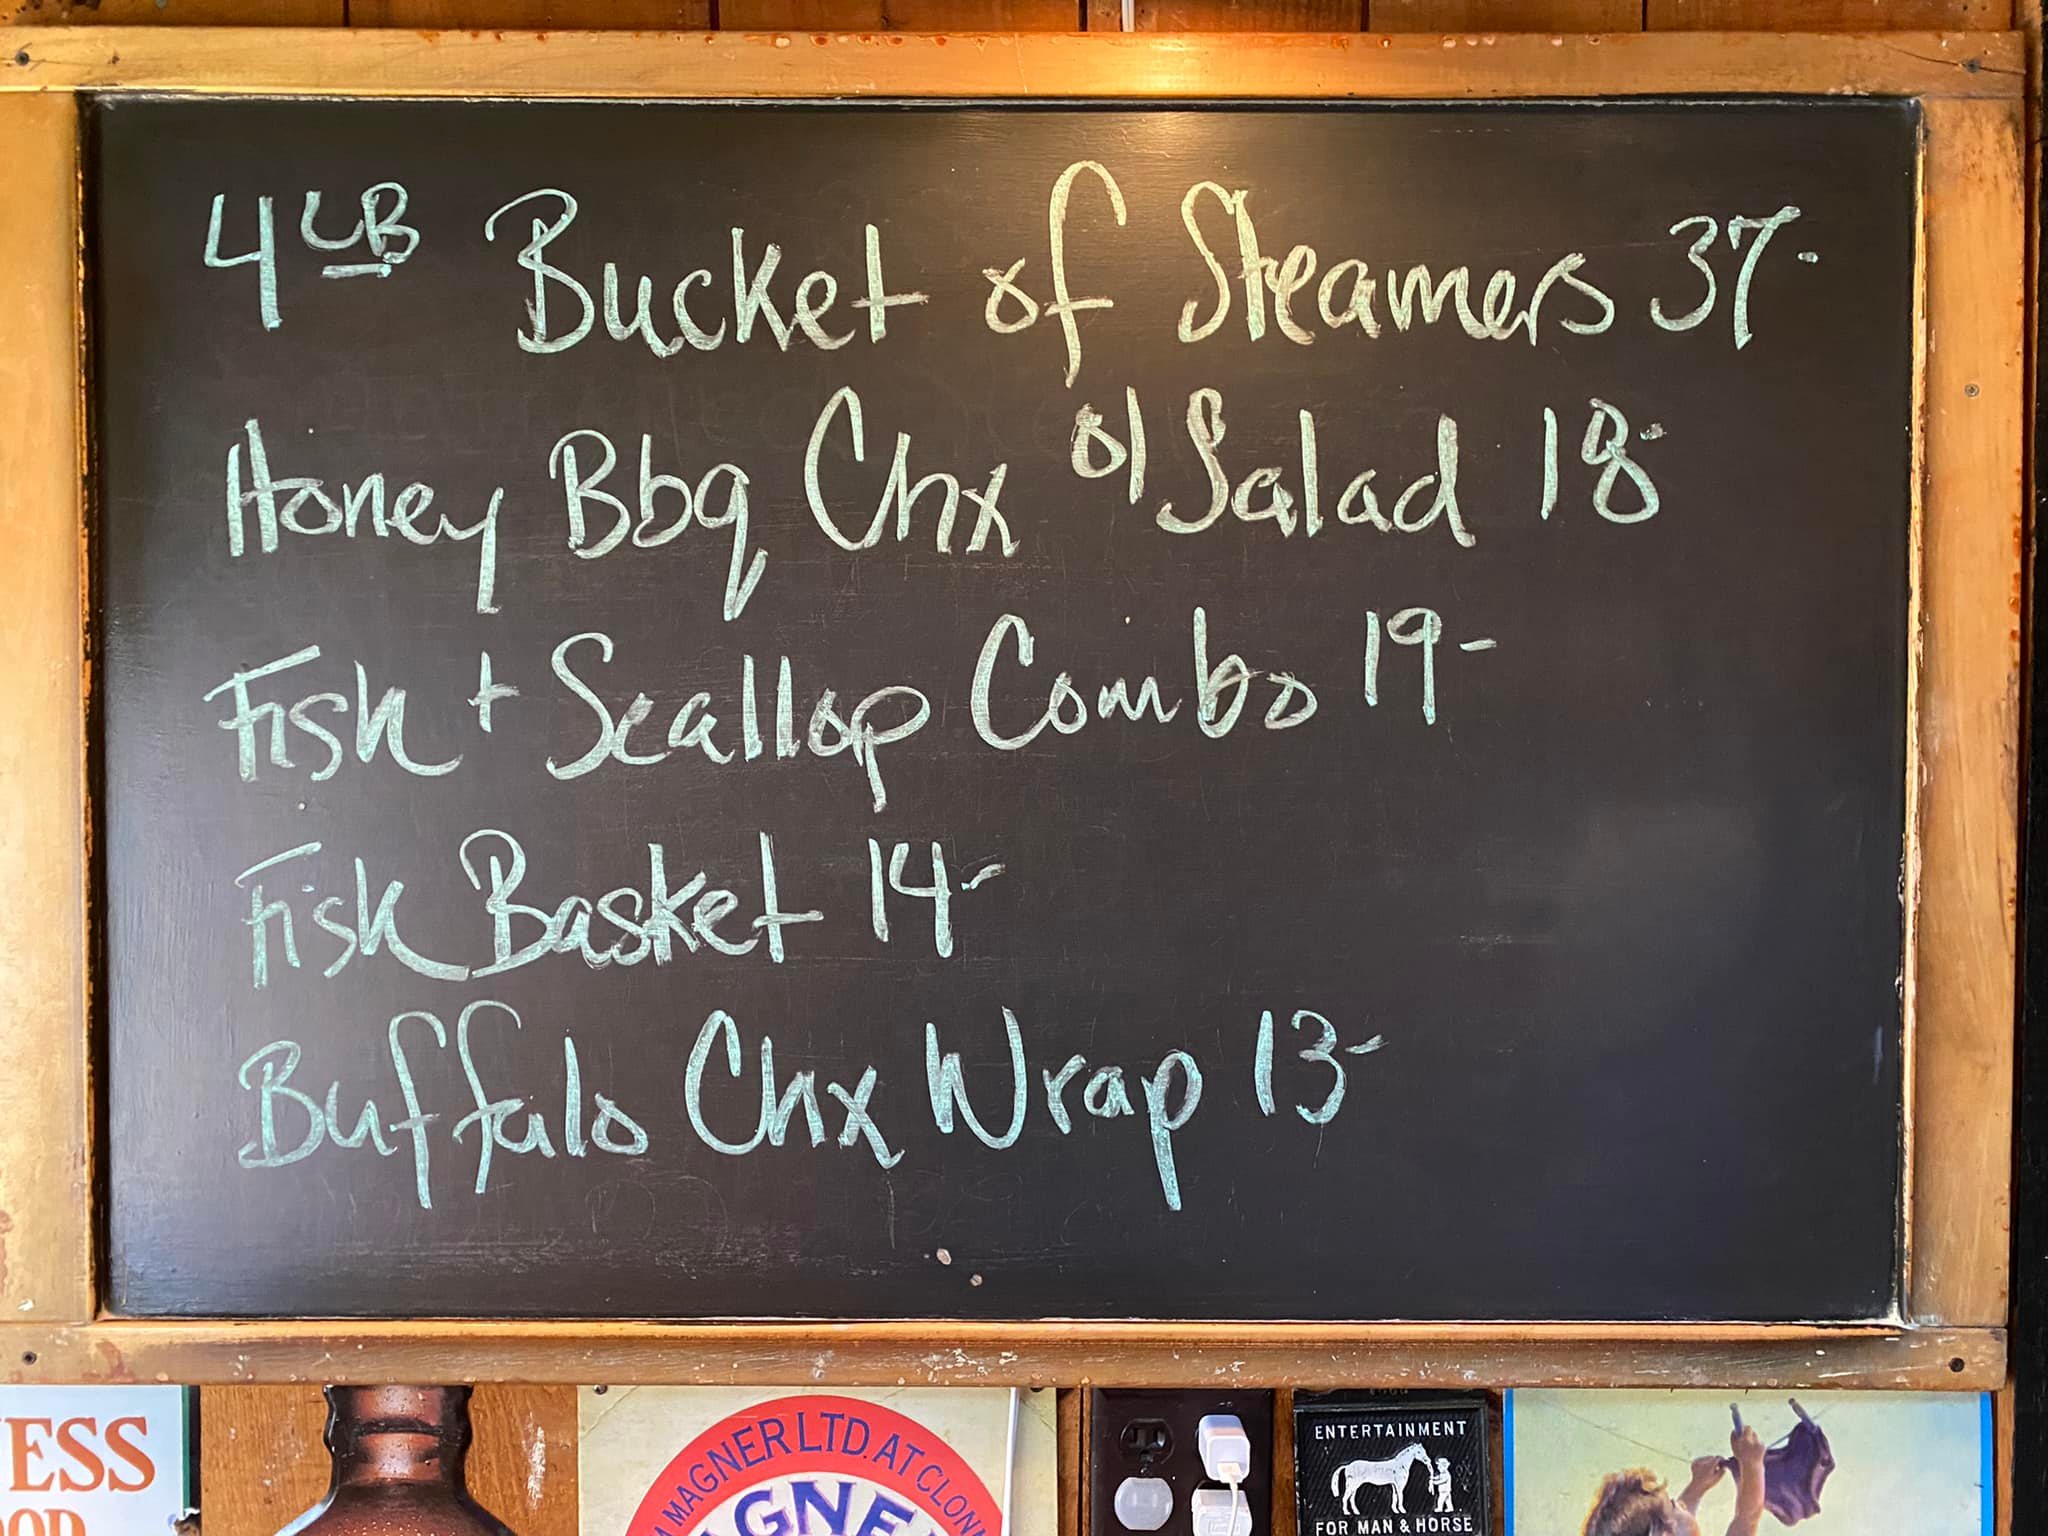 4LB Bucket of Steamers 37-
Honey Bbq Chx o/ Salad 18-
Fish + Scallop Combo 19-
Fish Basket 14-
Buffalo Chx Wrap 13-
ESS
OD
A MAGNER LTD. AT CLON
AGNE
ENTERTAINMENT
FOR MAN & HORSE